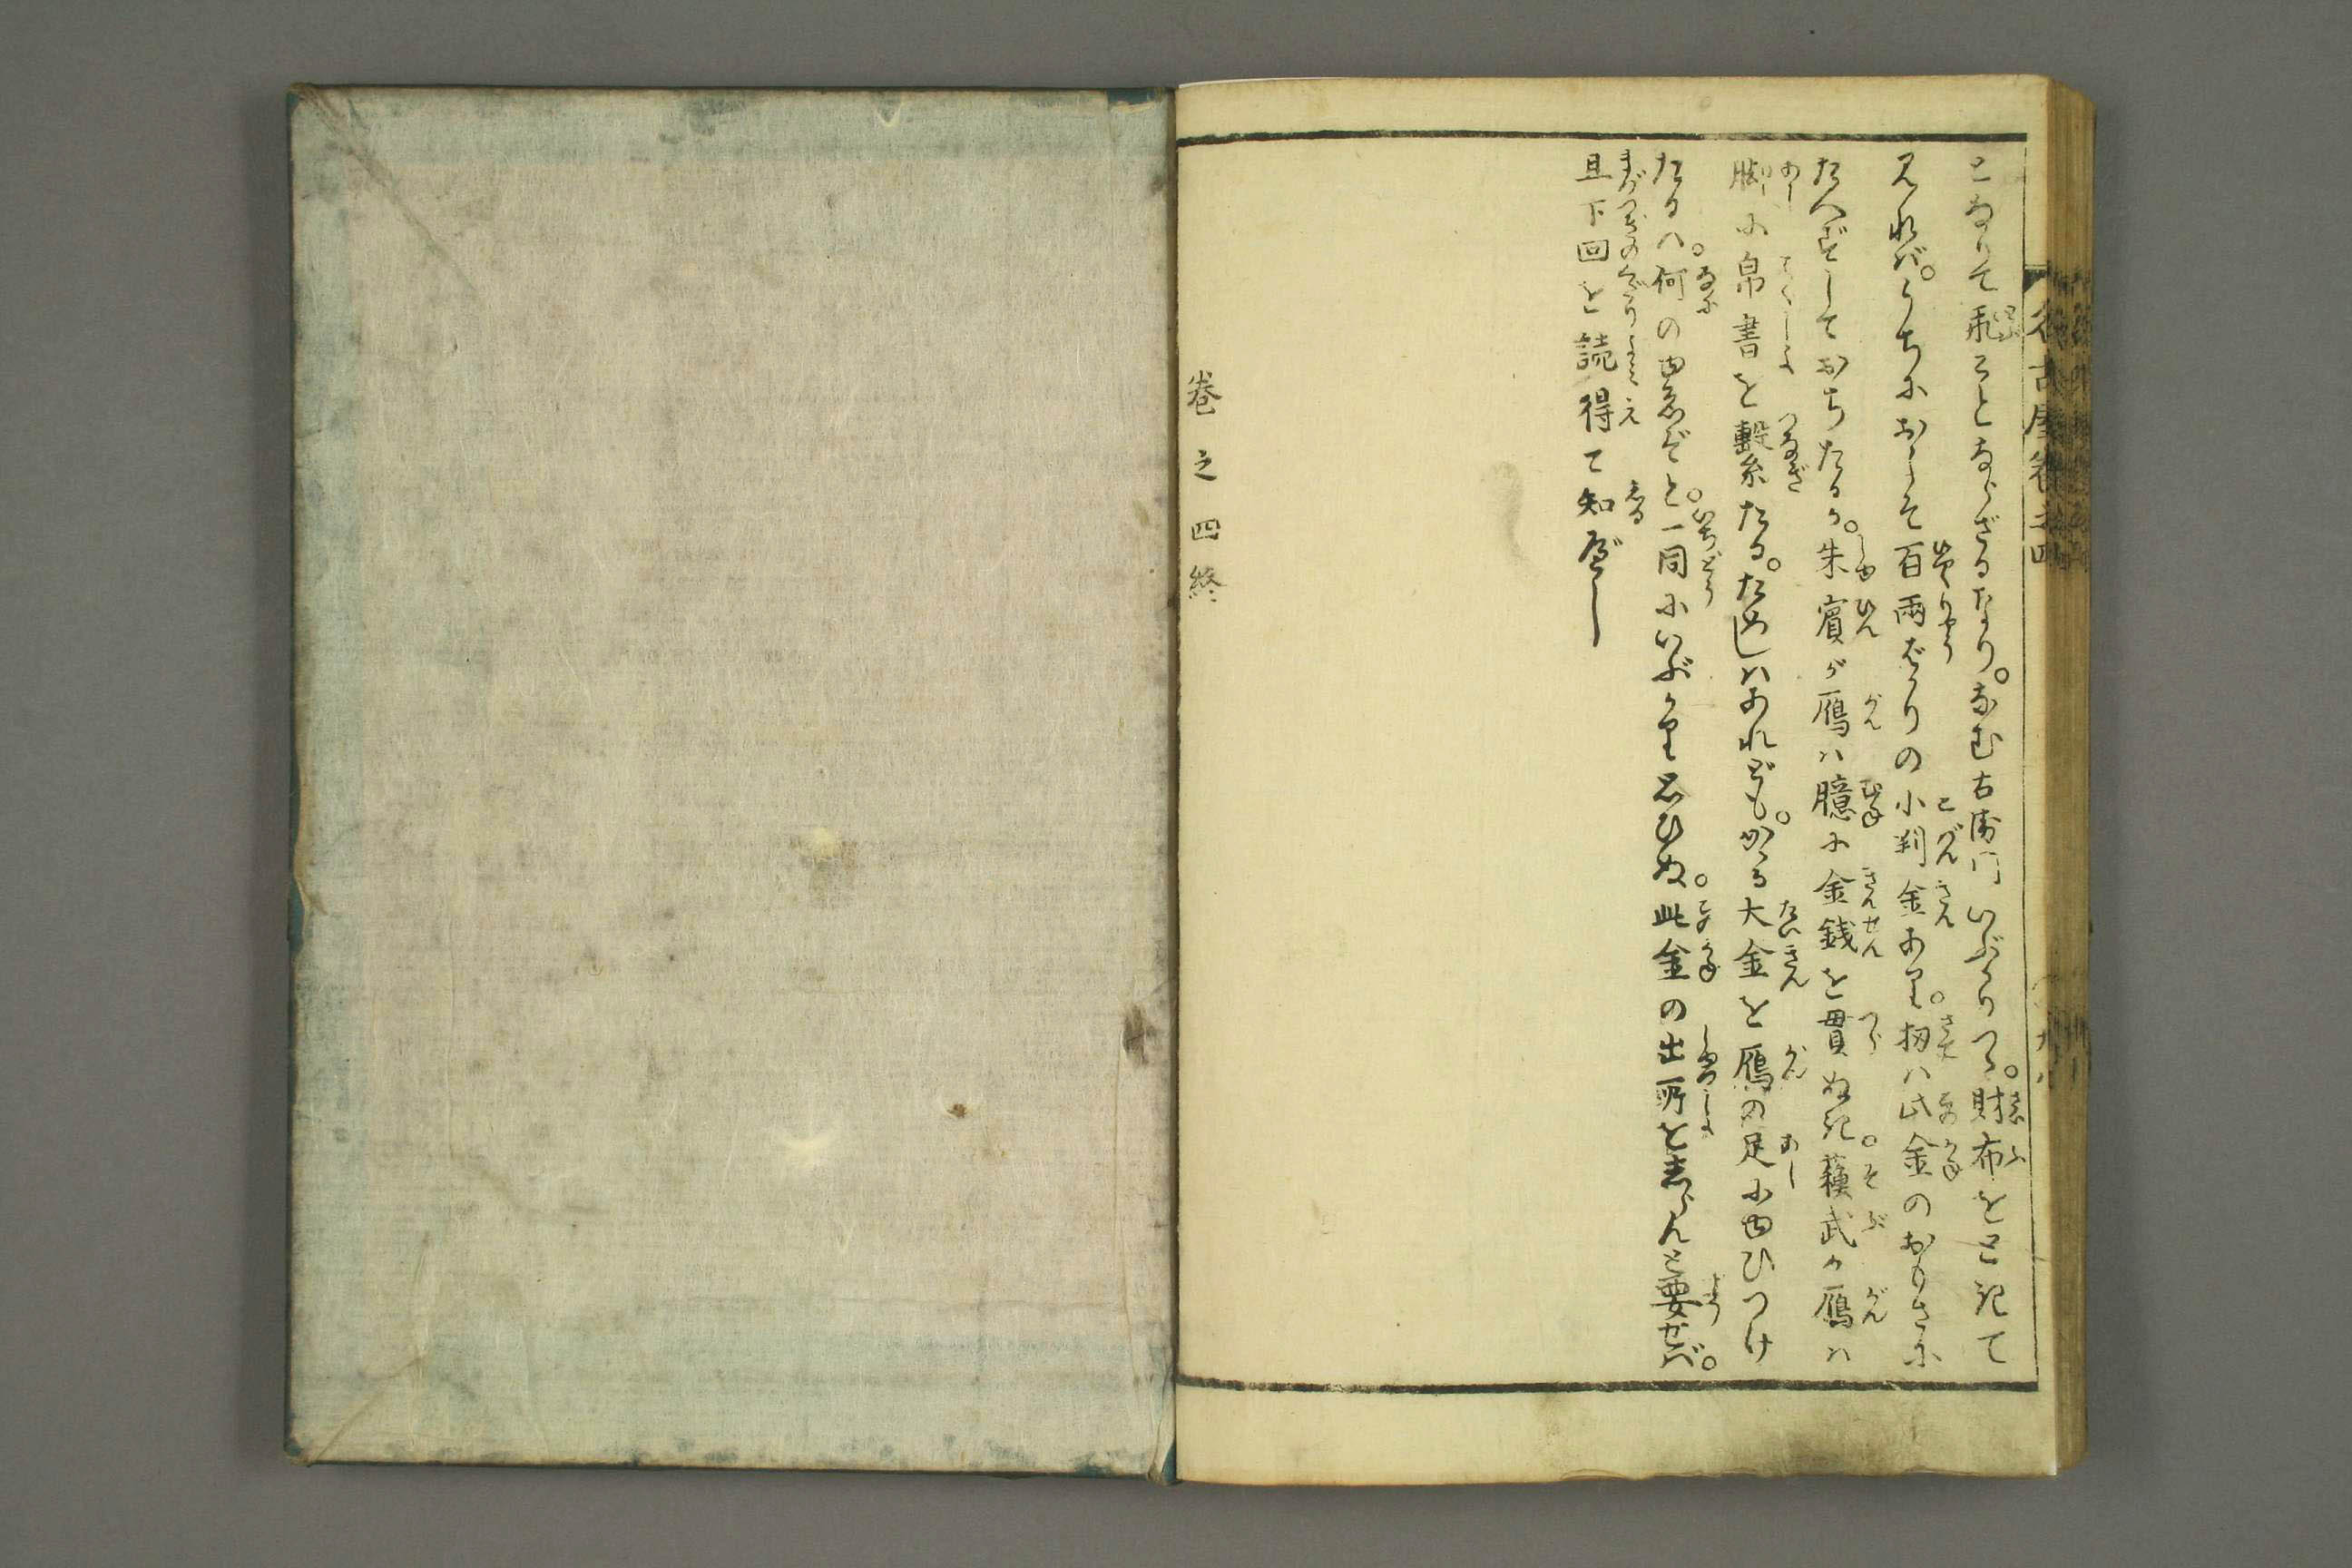 となりて飛ことならざるなり。なむ右衛門いぶかりつゝ。財布をときて
見れば。うちにおよそ百両ばかりの小判金あり。扨は此金のおもさに
たへずしておちたるか。朱賓が雁は臆に金銭を貫ぬき。蘓武が雁は
脚に帛書を繫たる。ためしはあれども。かゝる大金を雁の足にゆひつけ
たるは。何のゆゑぞと。一同にいぶかり思ひぬ。此金の出所をしらんと要せば。
且下回を読得て知べし
巻之四終